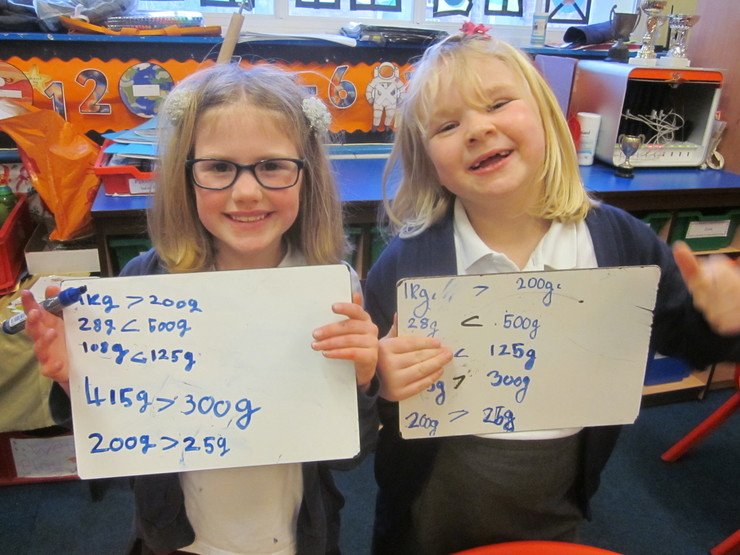 1kg > 200g
28g < 500g
108g < 125g
415g > 300g
200g > 25g
1kg. > 200g.
28g < 500g
< 125g
> 300g
200g > 25g
12
6